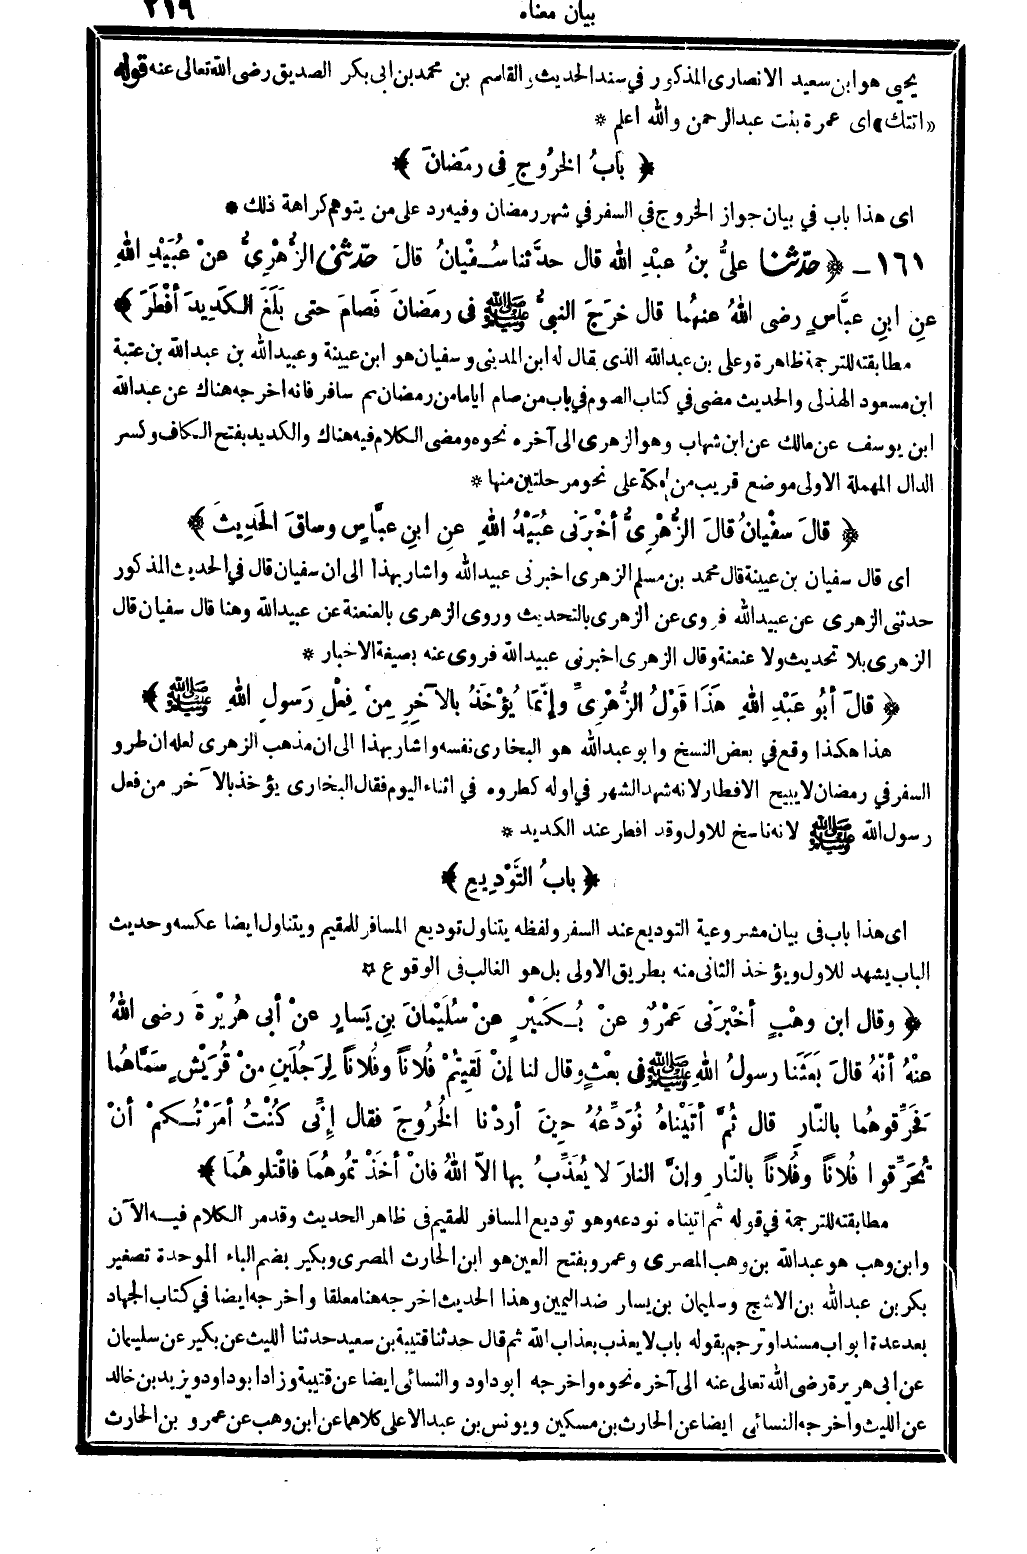 بيان معناه ٢١٩
يحيى هو ابن سعيد الانصارى المذكور في سند الحديث والقاسم بن محمد بن ابى بكر الصديق رضى الله تعالى عنه قوله
«اتتك» اى عمرة بنت عبدالرحمن والله اعلم *
﴿ بابُ الخُرُوجِ فى رمَضَانَ ﴾
اى هذا باب في بيان جواز الخروج في السفر في شهر رمضان وفيه رد على من يتوهم كراهة ذلك *
١٦١ - ﴿ حدّثنا علىُّ بنُ عبْدِ الله قال حدَّثنا سُفْيانُ قالَ حدّثنى الزُّهْرِىُّ عنْ عُبَيْدِ اللهِ
عنِ ابنِ عبَّاسٍ رضى اللهُ عنهُما قال خرَجَ النبىُّ ﷺ فى رمَضانَ فَصامَ حتى بَلَغَ الكَدِيدَ أفْطَرَ ﴾
مطابقته للترجمة ظاهرة وعلى بن عبدالله الذى يقال له ابن المدينى وسفيان هو ابن عيينة وعبيدالله بن عبدالله بن عتبة
ابن مسعود الهذلى والحديث مضى في كتاب الصوم في باب من صام اياما من رمضان ثم سافر فانه اخرجه هناك عن عبدالله
ابن يوسف عن مالك عن ابن شهاب وهو الزهرى الى آخره نحوه ومضى الكلام فيه هناك والكديد بفتح الكاف وكسر
الدال المهملة الاولى موضع قريب من مكة على نحو مرحلتين منها *
﴿ قالَ سفْيانُ قالَ الزُّهْرِىُّ أخْبَرَنى عُبَيْدُ اللهِ عنِ ابنِ عبَّاسٍ وساقَ الحَدِيثَ ﴾
اى قال سفيان بن عيينة قال محمد بن مسلم الزهرى اخبرنى عبيدالله واشار بهذا الى ان سفيان قال في الحديث المذكور
حدثنى الزهرى عن عبيدالله فروى عن الزهرى بالتحديث وروى الزهرى بالعنعنة عن عبيدالله وهنا قال سفيان قال
الزهرى بلا تحديث ولا عنعنة وقال الزهرى اخبرنى عبيدالله فروى عنه بصيغة الاخبار *
﴿ قالَ أبُو عَبْدِ اللهِ هَذَا قَوْلُ الزُّهْرِىِّ وإنَّمَا يُؤْخَذُ بالآخِرِ مِنْ فِعْلِ رَسولِ اللهِ ﷺ ﴾
هذا هكذا وقع في بعض النسخ وابو عبدالله هو البخارى نفسه واشار بهذا الى ان مذهب الزهرى لعله ان طرو
السفر في رمضان لا يبيح الافطار لانه شهد الشهر في اوله كطروه في اثناء اليوم فقال البخارى يؤخذ بالآخر من فعل
رسول الله ﷺ لانه ناسخ للاول وقد افطر عند الكديد *
﴿ بابُ التَّوْدِيعِ ﴾
اى هذا باب فى بيان مشروعية التوديع عند السفر ولفظه يتناول توديع المسافر للمقيم ويتناول ايضا عكسه وحديث
الباب يشهد للاول ويؤخذ الثانى منه بطريق الاولى بل هو الغالب فى الوقوع *
﴿ وقال ابن وهْبٍ أخْبرَنى عَمْرٌو عنْ بُكَيْرٍ عنْ سُلَيْمانَ بنِ يَسارٍ عنْ أبى هُرَيْرَةَ رضى اللهُ
عنْهُ أنَّهُ قالَ بعَثَنا رسولُ اللهِ ﷺ فى بعْثٍ وقال لنا إنْ لَقِيتُمْ فُلاناً وفُلاناً لِرَجُلَينِ مِنْ قُرَيْشٍ سَمَّاهُما
فَحَرِّقوهُما بالنَّارِ قال ثُمَّ أتَيْناهُ نُوَدِّعُهُ حِينَ أردْنا الخُرُوجَ فقال إنِّى كُنْتُ أمَرْتُكمْ أنْ
تُحَرِّقوا فُلاناً وفُلاناً بالنَّارِ وإنَّ النارَ لا يُعَذِّبُ بها الاّ اللهُ فانْ أخَذْتمُوهُمَا فاقْتلوهُمَا ﴾
مطابقته للترجمة في قوله ثم اتيناه نودعه وهو توديع المسافر للمقيم فى ظاهر الحديث وقد مر الكلام فيه الآن
وابن وهب هو عبدالله بن وهب المصرى وعمرو بفتح العين هو ابن الحارث المصرى وبكير بضم الباء الموحدة تصغير
بكر بن عبدالله بن الاشج وسليمان بن يسار ضد اليمين وهذا الحديث اخرجه هنا معلقا واخرجه ايضا في كتاب الجهاد
بعد عدة ابواب مسندا وترجم بقوله باب لا يعذب بعذاب الله ثم قال حدثنا قتيبة بن سعيد حدثنا الليث عن بكير عن سليمان
عن ابى هريرة رضى الله تعالى عنه الى آخره نحوه واخرجه ابو داود والنسائى ايضا عن قتيبة وزاد ابو داود ويزيد بن خالد
عن الليث واخرجه النسائى ايضا عن الحارث بن مسكين ويونس بن عبد الاعلى كلاهما عن ابن وهب عن عمرو بن الحارث